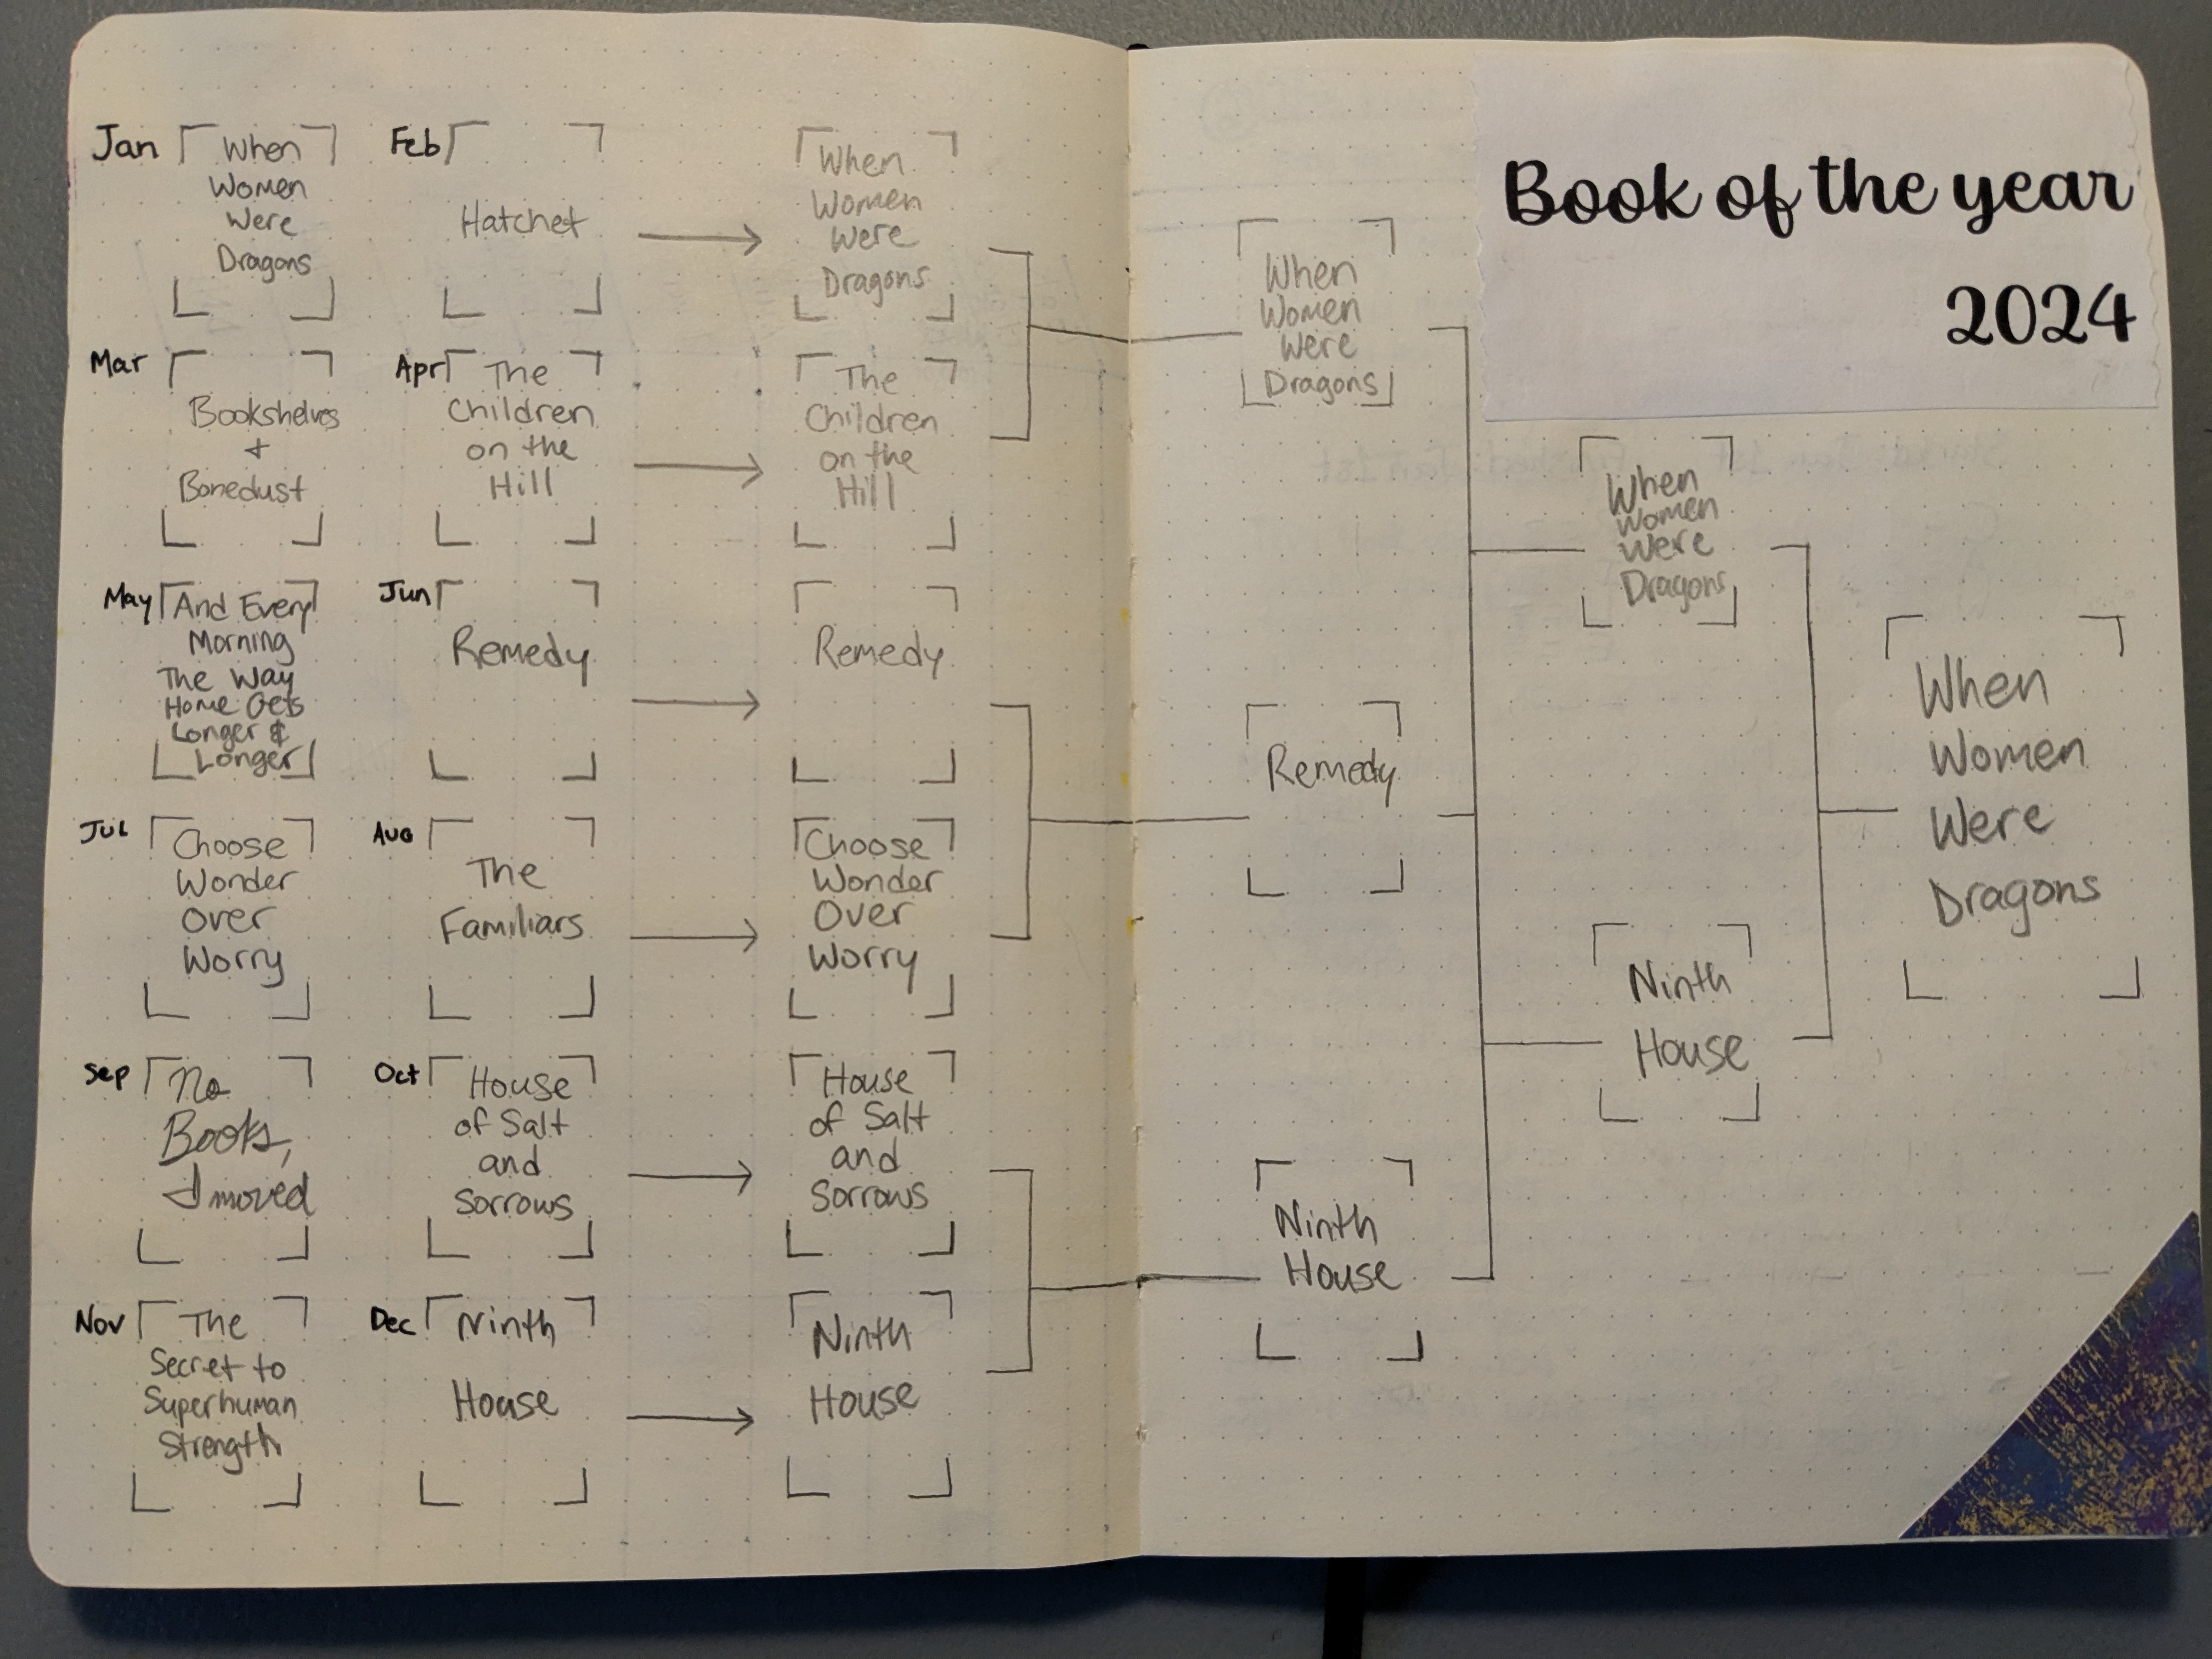 Jan
When
Women
Were
Dragons
Feb
Hatchet
When
Women
Were
Dragons
Mar
Bookshelves
+
Bonedust
Apr
The
Children
on the
Hill
The
Children
on the
Hill
May
And Every
Morning
The Way
Home Gets
Longer &
Longer
Jun
Remedy
Remedy
Jul
Choose
Wonder
Over
Worry
Aug
The
Familiars
Choose
Wonder
Over
Worry
Sep
No
Books,
I moved
Oct
House
of Salt
and
Sorrows
House
of Salt
and
Sorrows
Nov
The
Secret to
Superhuman
Strength
Dec
Ninth
House
Ninth
House
Book of the year
2024
When
Women
Were
Dragons
Remedy
Ninth
House
When
Women
Were
Dragons
Ninth
House
When
Women
Were
Dragons